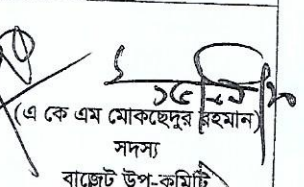 (এ কে এম মোকছেদুর রহমান)
সদস্য
বাজেট উপ-কমিটি